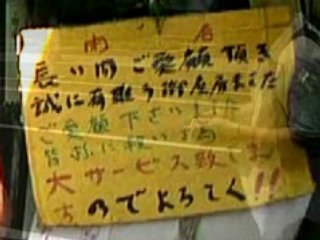 長い間ご愛顧頂き
誠に有難う御座居ました
ご愛顧下さいました
皆様に
大サービス致しま
すのでよろしく!!